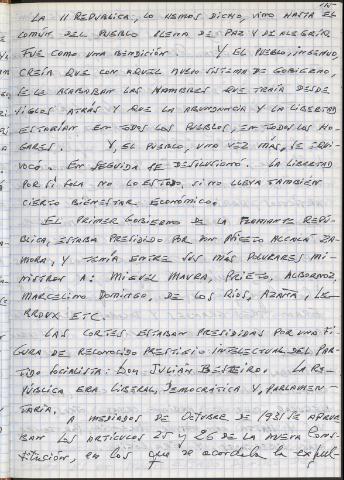 LA II REPUBLICA, LO HEMOS DICHO, VINO HASTA EL
COMÚN DEL PUEBLO LLENA DE PAZ Y DE ALEGRÍA
FUE COMO UNA BENDICIÓN. Y EL PUEBLO, INGENUO,
CREÍA QUE CON AQUEL NUEVO SISTEMA DE GOBIERNO,
SE LE ACABABAN LAS HAMBRES QUE TRAÍA DESDE
SIGLOS ATRÁS Y QUE LA ABUNDANCIA Y LA LIBERTAD
ESTARÍAN EN TODOS LOS PUEBLOS, EN TODOS LOS HO-
GARES. Y, EL PUEBLO, UNA VEZ MÁS, SE EQUI-
VOCÓ. EN SEGUIDA SE DESILUSIONÓ. LA LIBERTAD
POR SÍ SOLA NO LO ES TODO, SI NO LLEVA TAMBIÉN
CIERTO BIENESTAR ECONÓMICO.
EL PRIMER GOBIERNO DE LA FLAMANTE REPÚ-
BLICA, ESTABA PRESIDIDO POR DON NICETO ALCALÁ ZA-
MORA, Y TENÍA ENTRE SUS MÁS POPULARES MI-
NISTROS A: MIGUEL MAURA, PRIETO, ALBORNOZ
MARCELINO DOMINGO, DE LOS RÍOS, AZAÑA, LE-
RROUX ETC.
LAS CORTES ESTABAN PRESIDIDAS POR UNA FI-
GURA DE RECONOCIDO PRESTIGIO INTELECTUAL DEL PAR-
TIDO SOCIALISTA: DON JULIÁN BESTEIRO. LA RE-
PÚBLICA ERA LIBERAL, DEMOCRÁTICA Y, PARLAMEN-
TARIA.
A MEDIADOS DE OCTUBRE DE 1931 SE APRUE-
BAN LOS ARTÍCULOS 25 Y 26 DE LA NUEVA CONS-
TITUCIÓN, en los que se acordaba la expul-